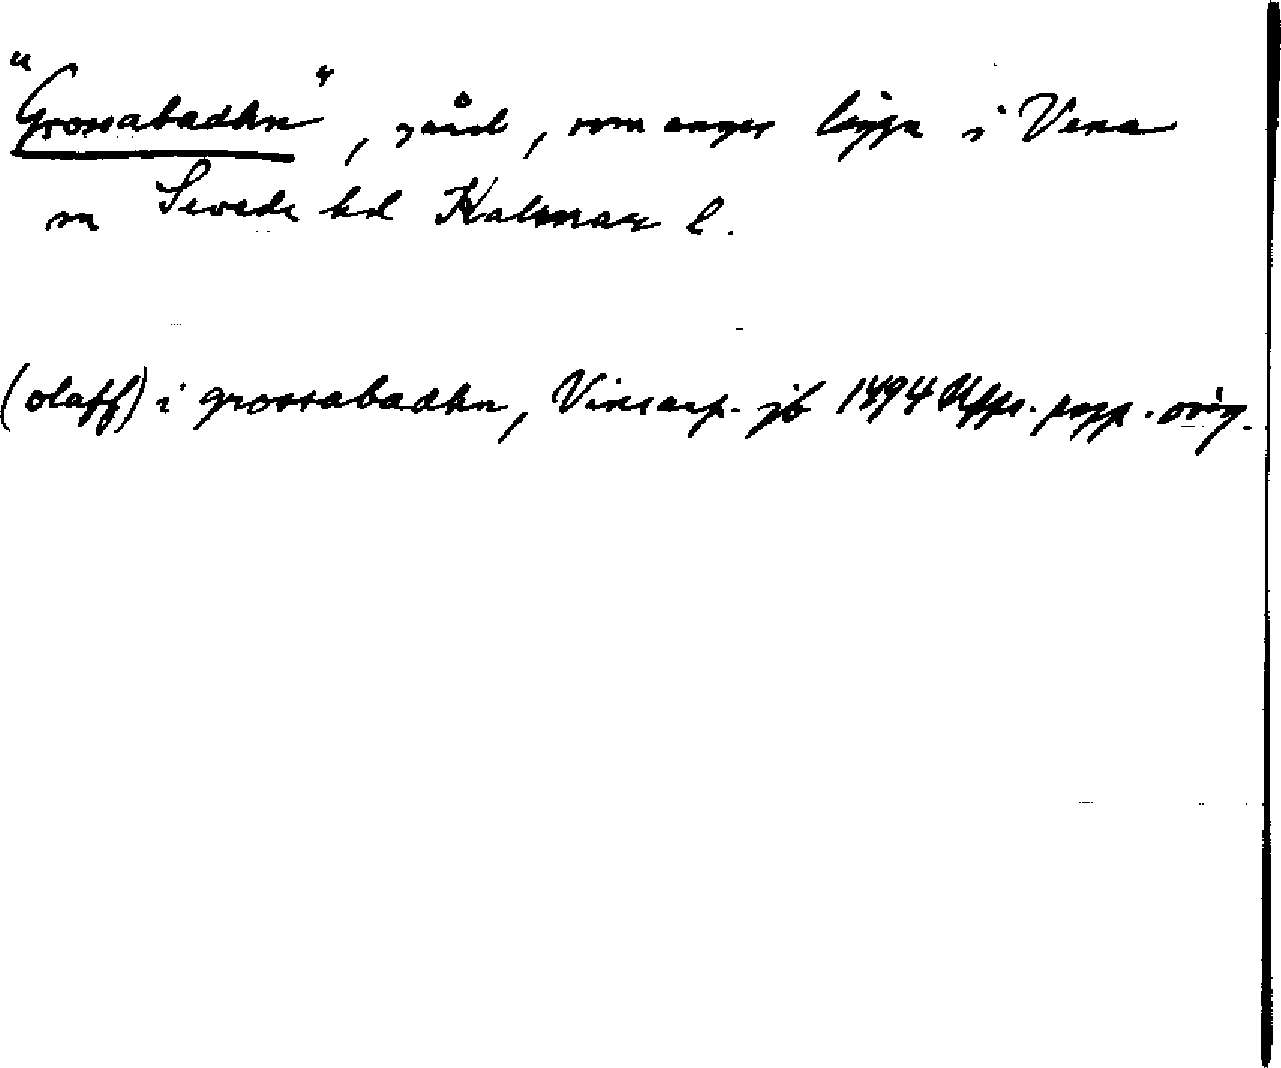 "Grossabadhn", gård, som anges ligga i Vena
sn Sevede hd Kalmar l.
(olaff) i grossabadhn, Vinsarp. jb 1494 Upps. papp. orig.